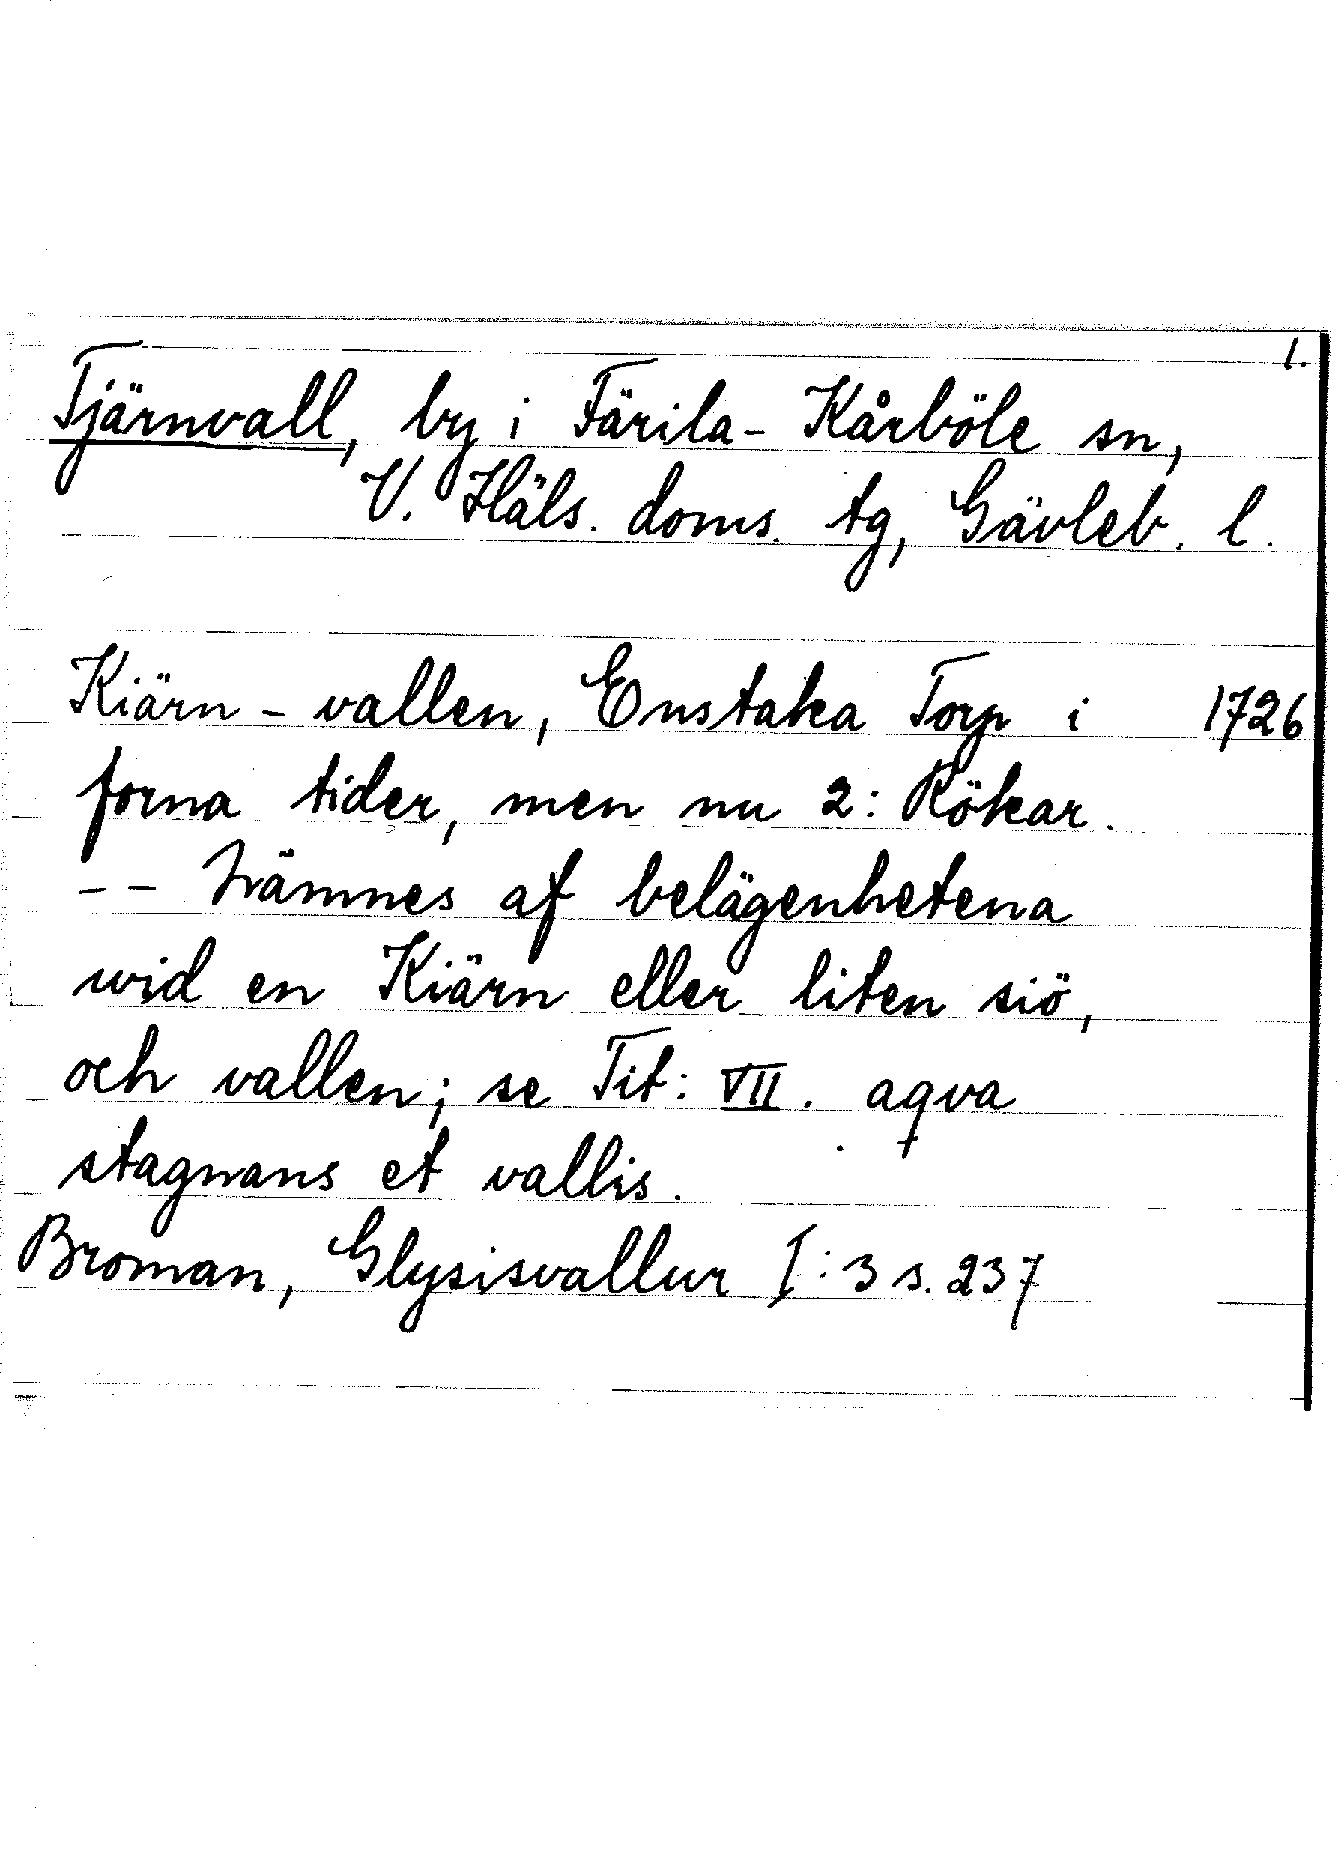 1.
Tjärnvall, by i Färila-Kårböle sn,
V. Häls. doms. tg, Gävleb. l.
Kiärn-vallen, Enstaka Torp i 1726
forna tider, men nu 2: Rökar.
-- Nämnes af belägenhetena
wid en Kiärn eller liten siö,
och vallen; se Tit: VII. aqva
stagnans et vallis.
Broman, Glysisvallur I:3 s. 237